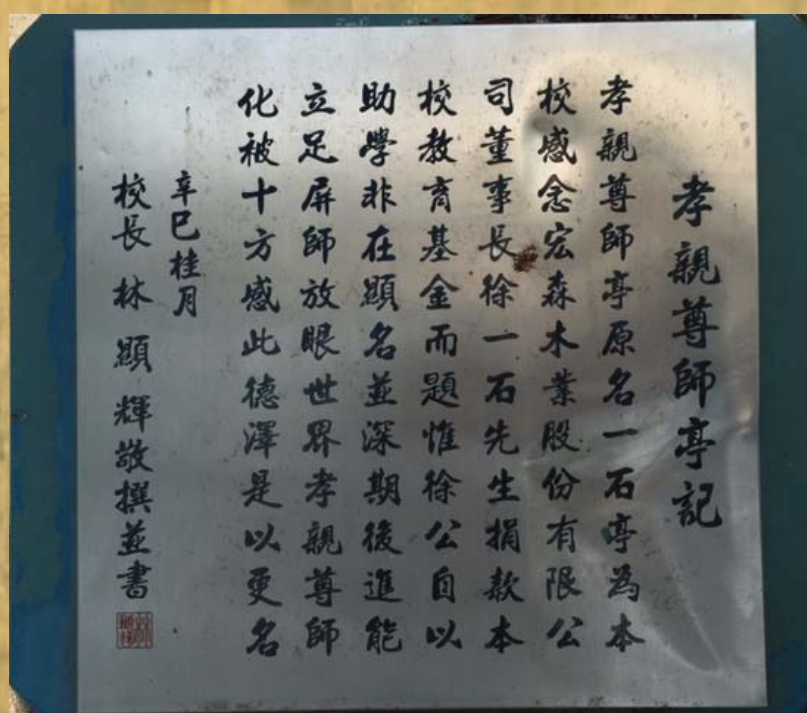 孝親尊師亭記
孝親尊師亭原名一石亭為本
校感念宏森木業股份有限公
司董事長徐一石先生捐款本
校教育基金而題惟徐公自以
助學非在顯名並深期後進能
立足屏師放眼世界孝親尊師
化被十方感此德澤是以更名
辛巳桂月
校長林顯輝敬撰並書